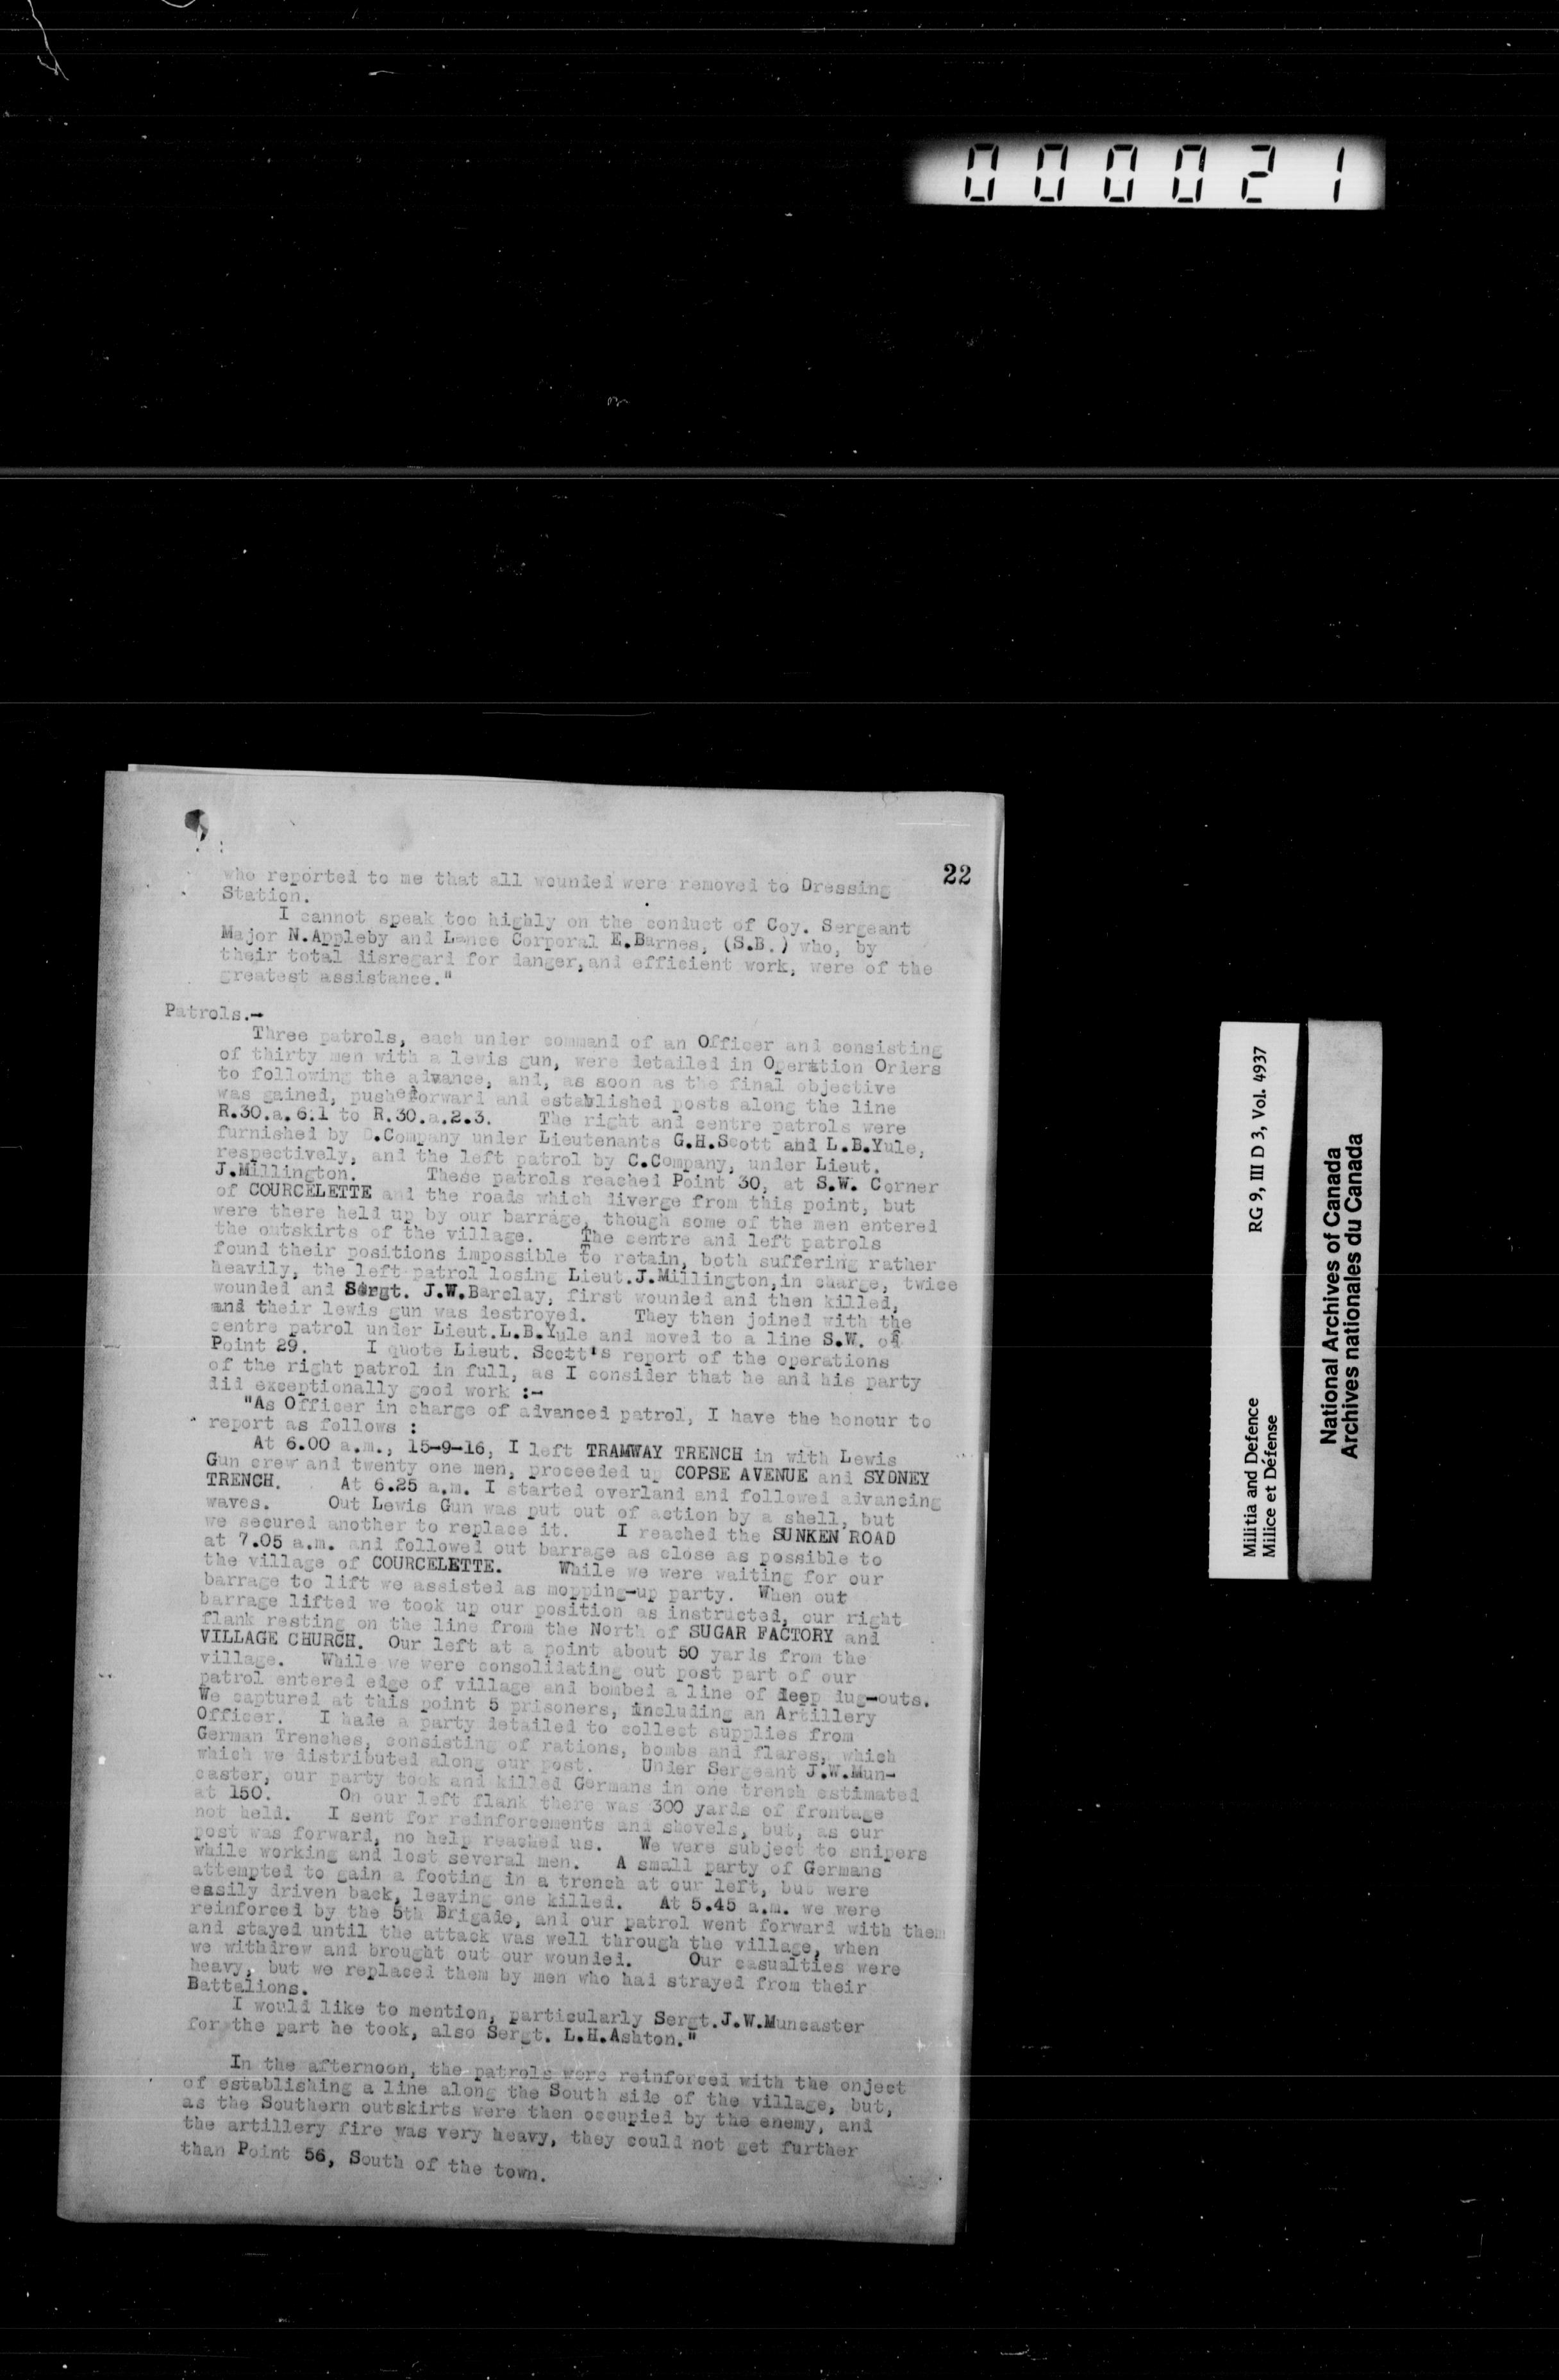 000021
22
who reported to me that all wounded were removed to Dressing
Station.
I cannot speak too highly on the conduct of Coy. Sergeant
Major N.Appleby and Lance Corporal E.Barnes, (S.B.) who, by
their total disregard for danger,and efficient work, were of the
greatest assistance."
Patrols.-
Three patrols, each under command of an Officer and consisting
of thirty men with a lewis gun, were detailed in Operation Orders
to following the advance, and, as soon as the final objective
was gained, pushed forward and established posts along the line
R.30.a.6.1 to R.30.a.2.3. The right and centre patrols were
furnished by D.Company under Lieutenants G.H.Scott and L.B.Yule,
respectively, and the left patrol by C.Company, under Lieut.
J.Millington. These patrols reached Point 30, at S.W. Corner
of COURCELETTE and the roads which diverge from this point, but
were there held up by our barrage, though some of the men entered
the outskirts of the village. The centre and left patrols
found their positions impossible to retain, both suffering rather
heavily, the left patrol losing Lieut.J.Millington,in charge, twice
wounded and Sergt. J.W.Barclay, first wounded and then killed,
and their lewis gun was destroyed. They then joined with the
centre patrol under Lieut.L.B.Yule and moved to a line S.W. of
Point 29. I quote Lieut. Scott's report of the operations
of the right patrol in full, as I consider that he and his party
did exceptionally good work :-
"As Officer in charge of advanced patrol, I have the honour to
report as follows :
At 6.00 a.m., 15-9-16, I left TRAMWAY TRENCH in with Lewis
Gun crew and twenty one men, proceeded up COPSE AVENUE and SYDNEY
TRENCH. At 6.25 a.m. I started overland and followed advancing
waves. Out Lewis Gun was put out of action by a shell, but
we secured another to replace it. I reached the SUNKEN ROAD
at 7.05 a.m. and followed out barrage as close as possible to
the village of COURCELETTE. While we were waiting for our
barrage to lift we assisted as mopping-up party. When out
barrage lifted we took up our position as instructed, our right
flank resting on the line from the North of SUGAR FACTORY and
VILLAGE CHURCH. Our left at a point about 50 yards from the
village. While we were consolidating out post part of our
patrol entered edge of village and bombed a line of deep dug-outs.
We captured at this point 5 prisoners, including an Artillery
Officer. I hade a party detailed to collect supplies from
German Trenches, consisting of rations, bombs and flares, which
which we distributed along our post. Under Sergeant J.W.Mun-
caster, our party took and killed Germans in one trench estimated
at 150. On our left flank there was 300 yards of frontage
not held. I sent for reinforcements and shovels, but, as our
post was forward, no help reached us. We were subject to snipers
while working and lost several men. A small party of Germans
attempted to gain a footing in a trench at our left, but were
easily driven back, leaving one killed. At 5.45 a.m. we were
reinforced by the 5th Brigade, and our patrol went forward with them
and stayed until the attack was well through the village, when
we withdrew and brought out our wounded. Our casualties were
heavy, but we replaced them by men who had strayed from their
Battalions.
I would like to mention, particularly Sergt.J.W.Muncaster
for the part he took, also Sergt. L.H.Ashton."
In the afternoon, the patrols were reinforced with the onject
of establishing a line along the South side of the village, but,
as the Southern outskirts were then occupied by the enemy, and
the artillery fire was very heavy, they could not get further
than Point 56, South of the town.
Militia and Defence RG 9, III D 3, Vol. 4937
Milice et Défense
National Archives of Canada
Archives nationales du Canada